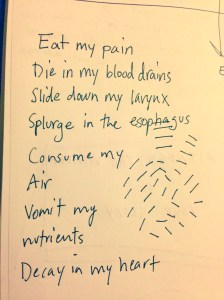 Eat my pain
Die in my blood drains
Slide down my larynx
Splurge in the esophagus
Consume my
Air
Vomit my
nutrients
Decay in my heart